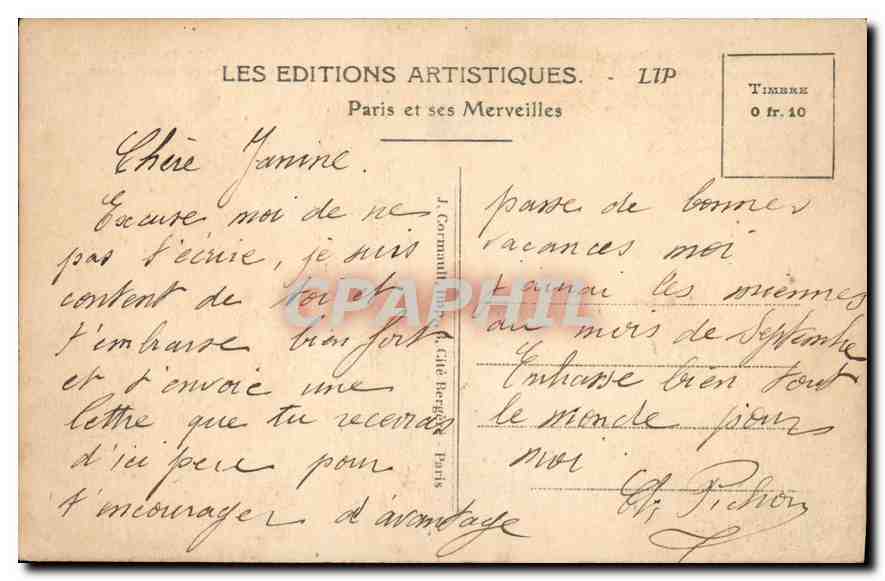 LES EDITIONS ARTISTIQUES. - LIP
Paris et ses Merveilles
TIMBRE
0 fr. 10
Chère Janine.
Excuse moi de ne
pas t'écrire, je suis
content de toi et
t'embrasse bien fort
et t'envoie une
lettre que tu recevras
d'ici peu pour
t'encourager d'avantage
J. Cormault, Cité Bergère - Paris
passe de bonnes
vacances moi
j'aurai les miennes
au mois de Septembre
Embrasse bien tout
le monde pour
moi
Pichon
CPAPHIL